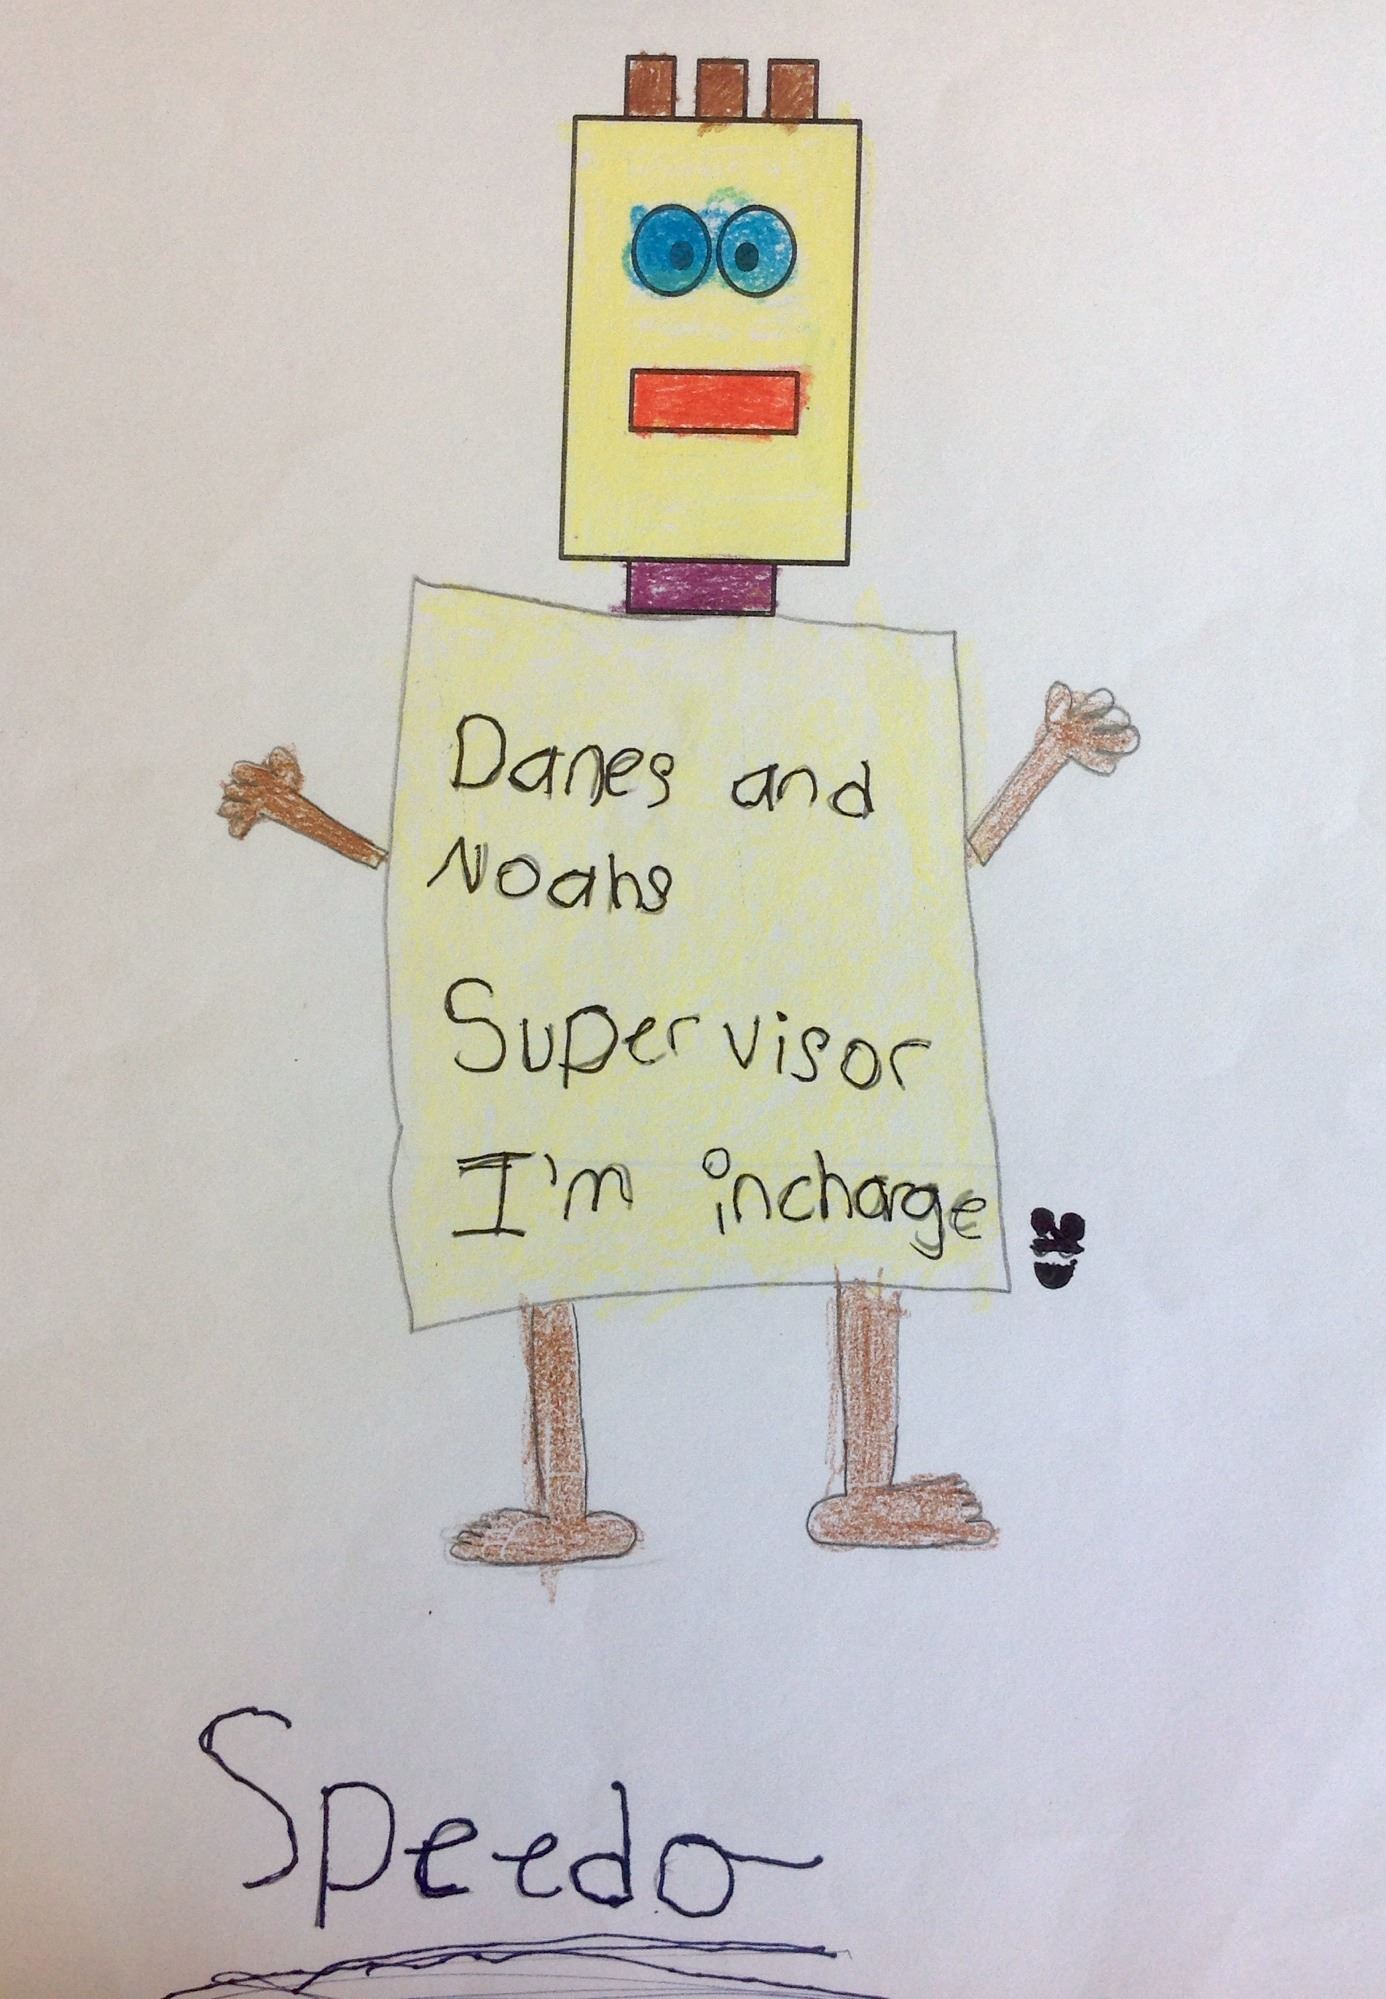 Danes and
Noahs
Supervisor
I'm incharge
Speedo